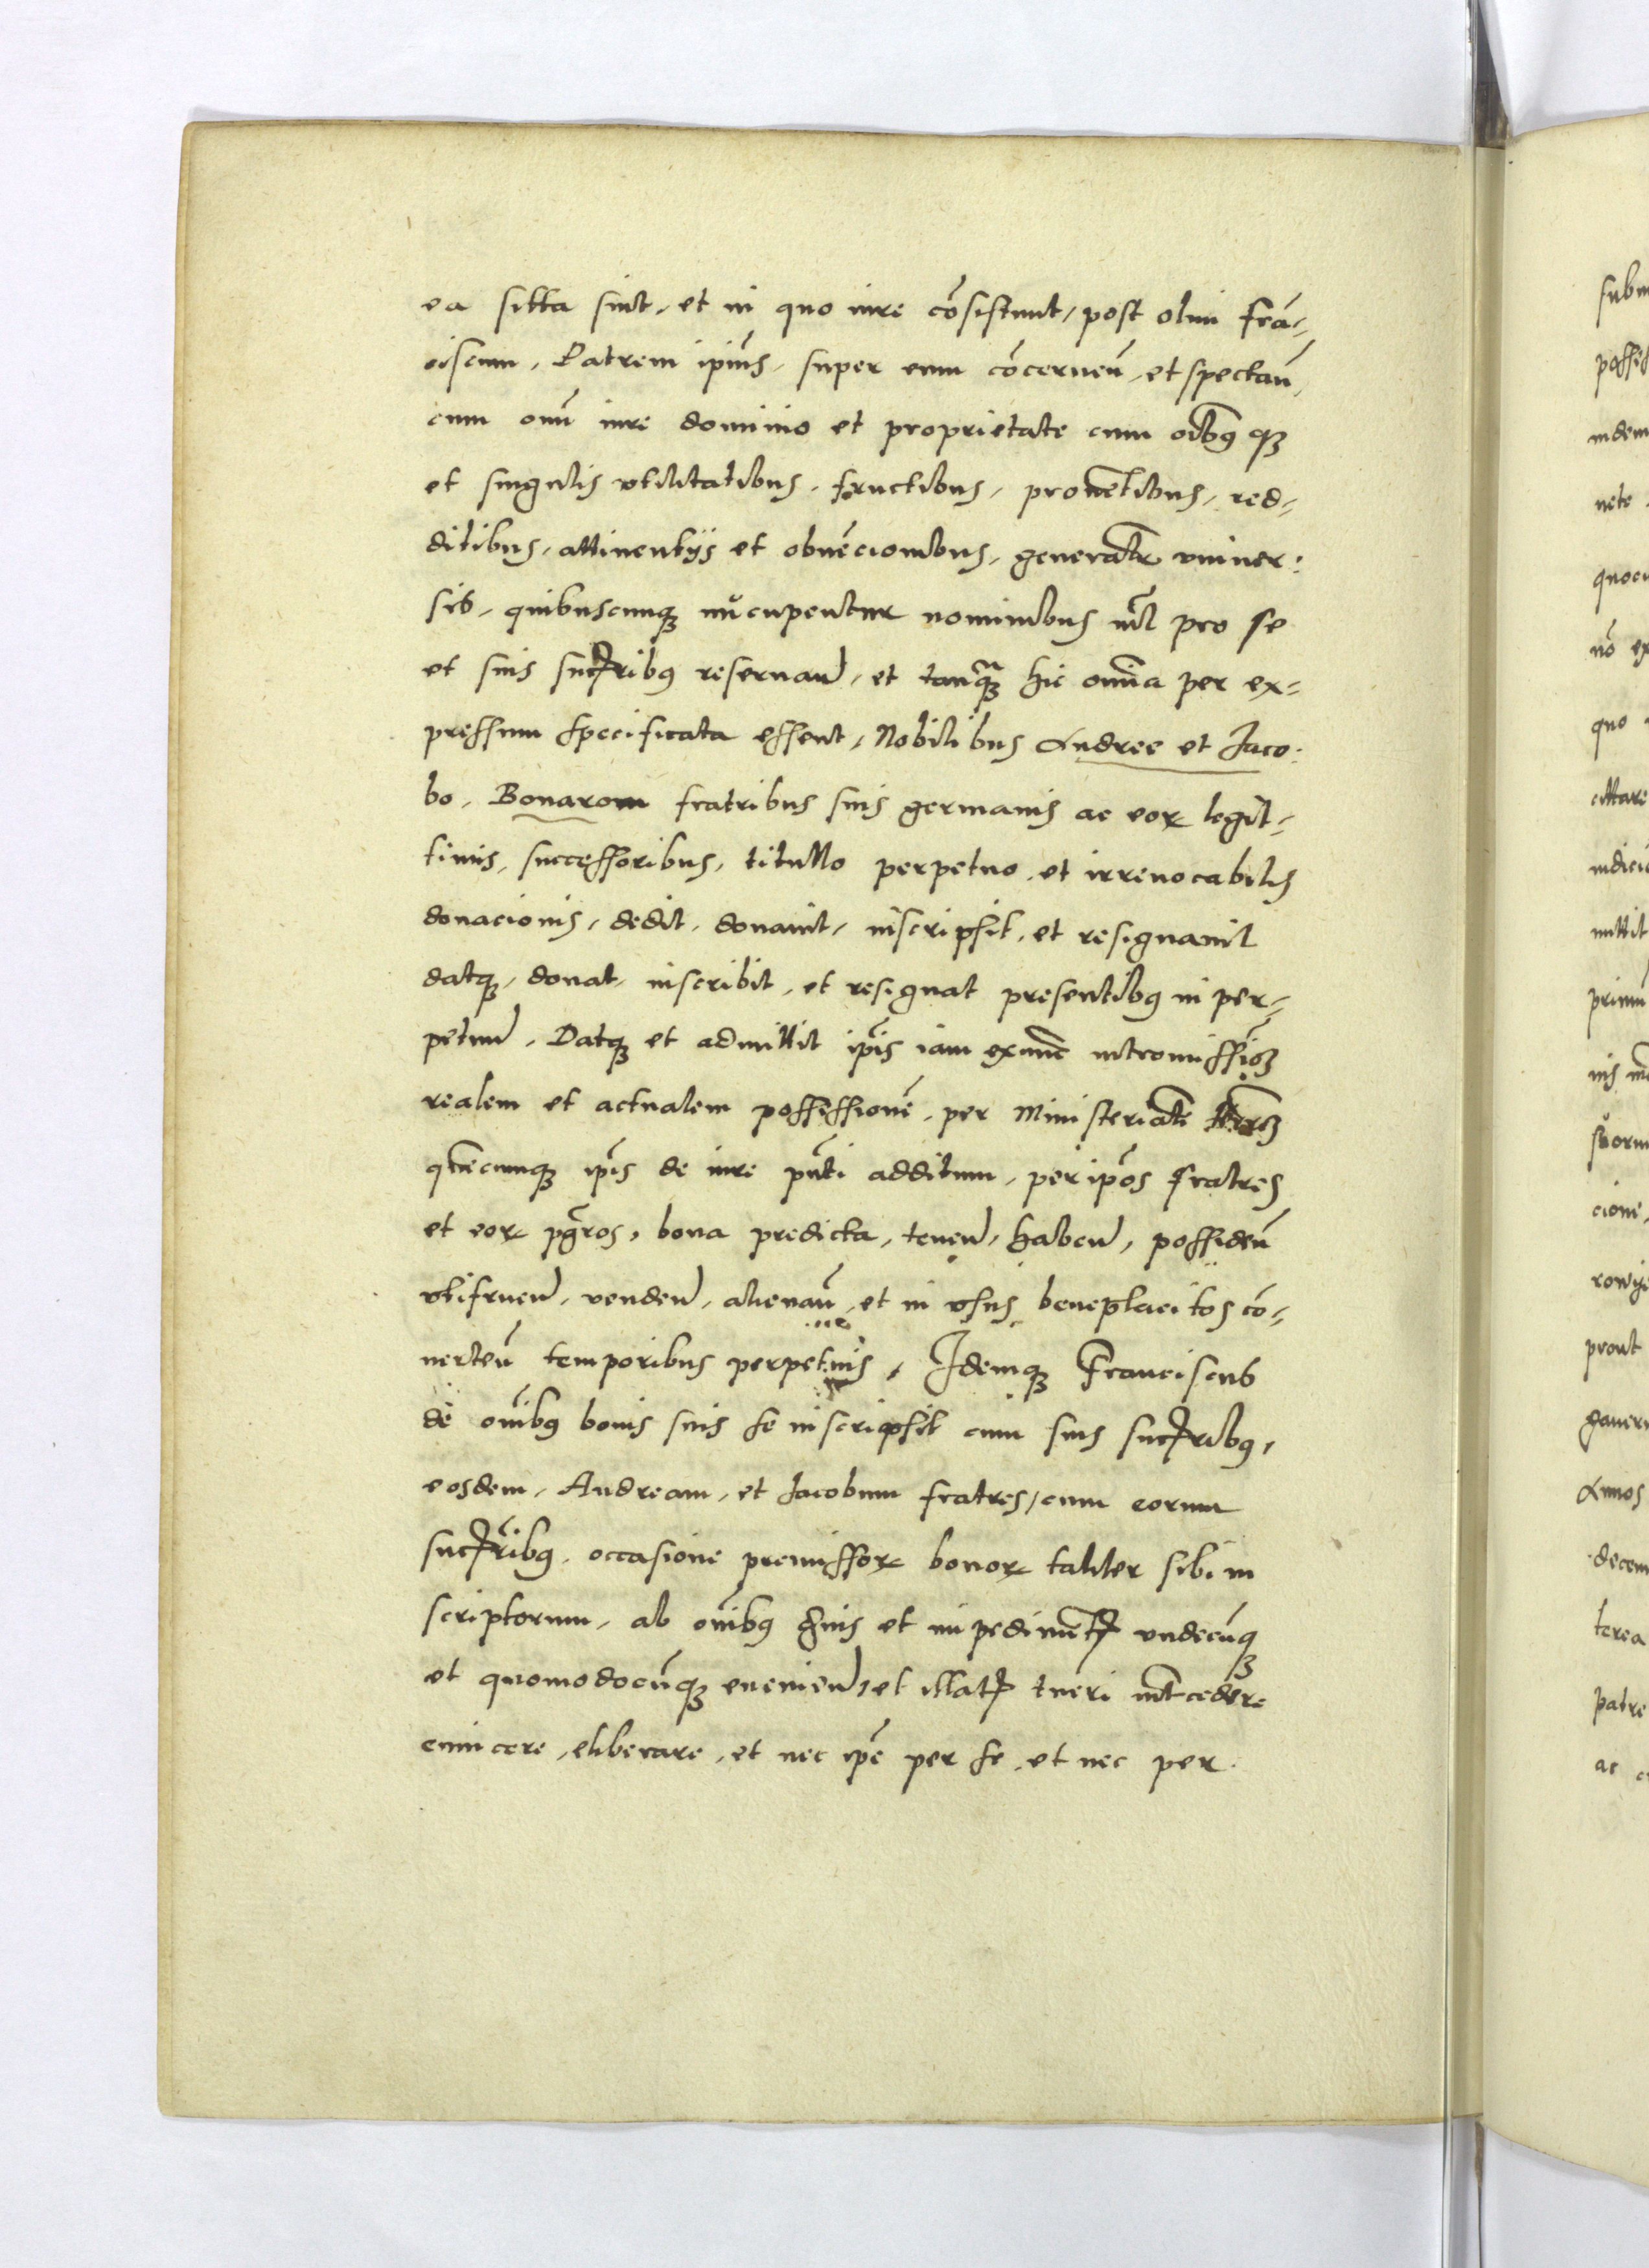 ea sitta sint, et in quo iure cōsistunt, post olim Frā-
ciscum, Patrem ipiūs, super eum cōcerneñ, et spectañ,
cum oñi iure dominio et proprietate cum oībꝰ qꝫ
et singulis vtilitatibus, fructibus, proventibus, red-
ditibus, attinentijs et obuēcionibus, generalr̄ vniuer:
sis, quibuscunqꝫ nūcupentur nominibus nil pro se
et suis sucꝝribꝰ reseruand, et tanqꝫ hic omnia per ex-
pressum specificata essent, Nobilibus Andree et Jaco:
bo, Bonarom fratribus suis germanis ac eoꝝ legit-
timis, successoribus, titullo perpetuo, et irreuocabilis
donacionis, dedit, donauit, inscripsit, et resignauit
datqꝫ, donat, inscribit, et resignat presentibꝰ in per-
petuū. Datqꝫ et admittit ip̄is iam exnunc intromissioꝫ
realem et actualem possessionē, per Ministerialē
qūecunqꝫ ip̄is de iure pn̄ti additum, per ip̄os fratres
et eoꝝ pgr̄os, bona predicta, teneñ, habeñ, possideñ
vtifrueñ, vendeñ, alienañ, et in vsus beneplacitos cō-
uerteñ temporibus perpetuis, Idemqꝫ Franciscus
de oīnibꝰ bonis suis se inscripsit cum suis sucꝝribꝰ,
eosdem, Andream, et Jacobum fratres, cum eorum
sucꝝribꝰ, occasione premissoꝝ bonoꝝ taliter sibi in
scriptorum, ab oīnibꝰ et impedimētꝭ vndecūqꝫ
et quomodocūqꝫ eueniend, et illatꝭ tueri int̄cedere
euincere, eliberare, et nec ip̄e per se, et nec per